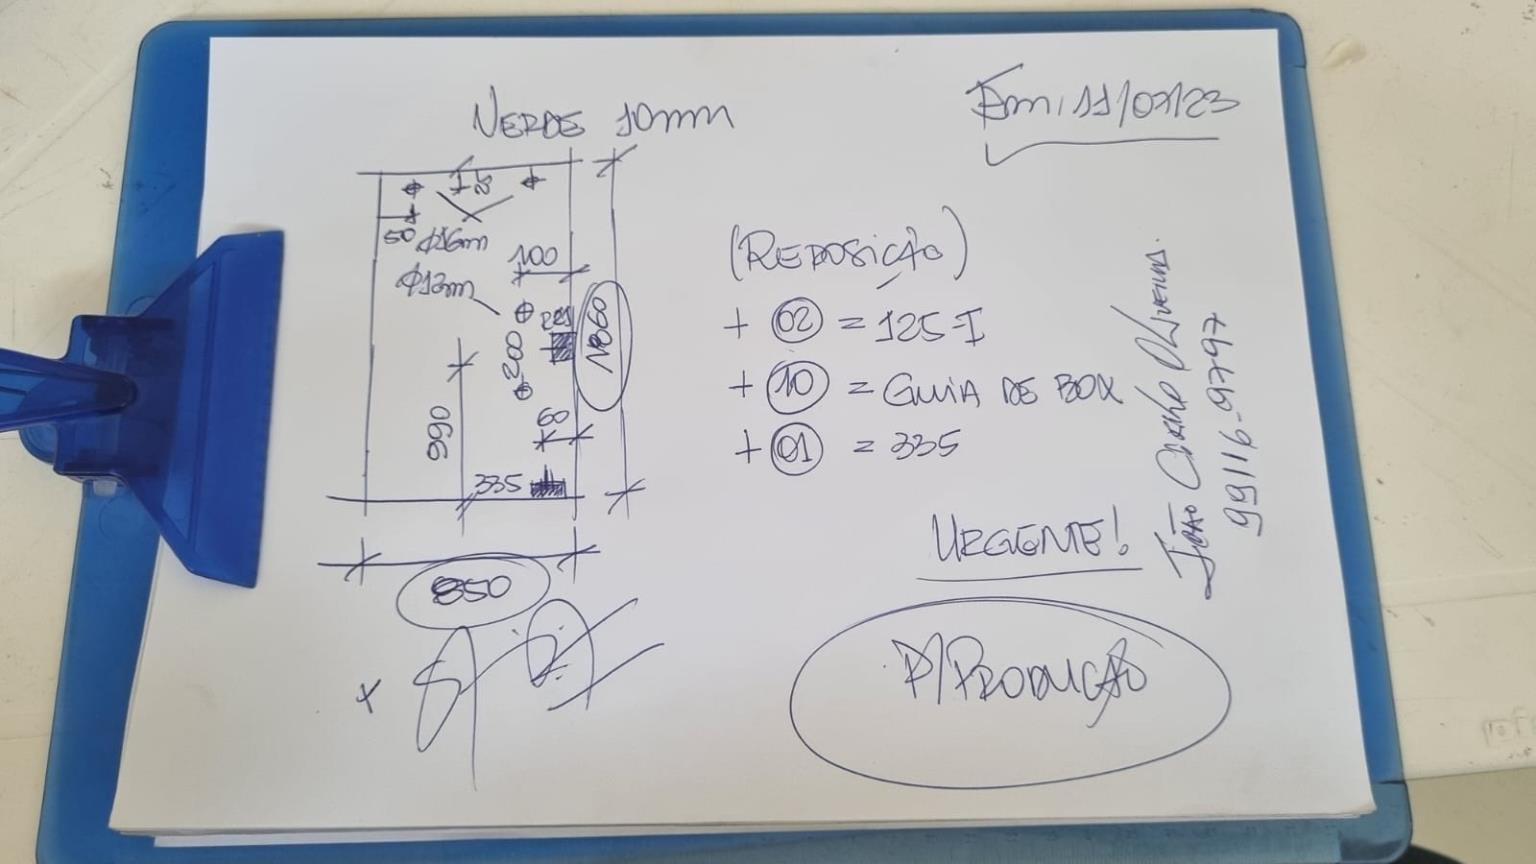 VERDE 10mm
Em: 11/07/23
50
25
Φ16m
100
Φ12m
200
1860
990
60
335
850
(REPOSIÇÃO)
+ 02 = 125-I
+ 10 = GUIA DE BOX
+ 01 = 335
URGENTE!
P/PRODUÇÃO
JOÃO
99116-9797